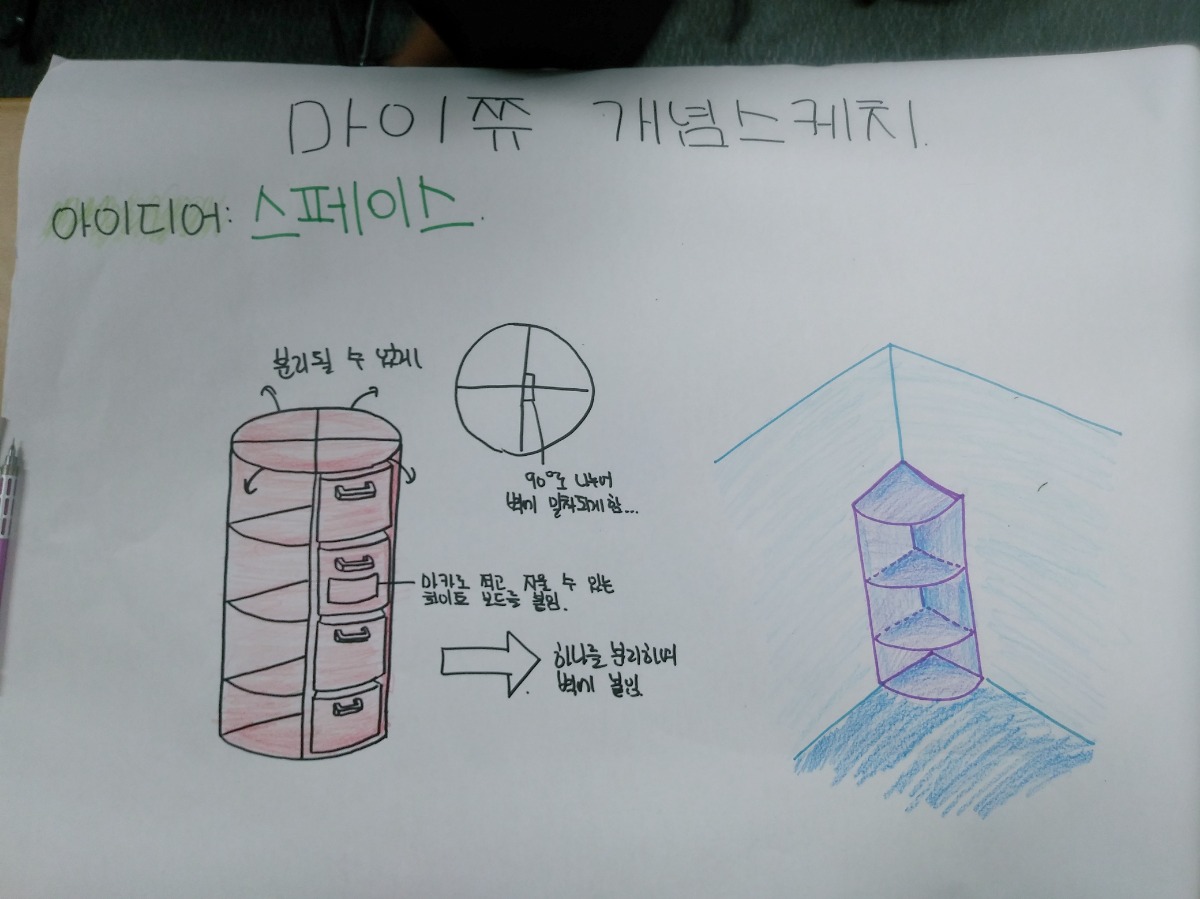 마이쮸 개념스케치.
아이디어: 스페이스.
분리될 수 있게
90°로 나누어
벽에 밀착되게 함...
마카로 적고 지울 수 있는
화이트 보드를 붙임.
하나를 분리하여
벽에 붙임